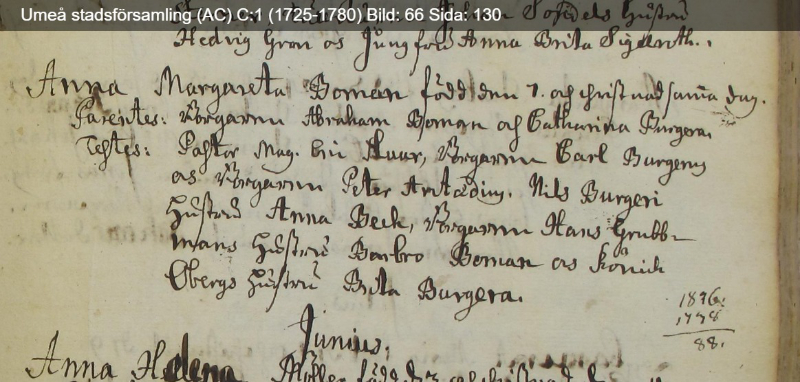 Umeå stadsförsamling (AC) C:1 (1725-1780) Bild: 66 Sida: 130
Hustru
Hedvig Gron os Jungfru Anna Brita
Anna Margareta Boman född den 7. och christnad samma dag.
Parentes: Borgaren Abraham Boman och Catharina Burgera.
Testes: Pastor Mag. Borgaren Carl Burgerus
os Borgaren Peter Nils Burgeri
Hustru Anna Beck, Borgaren Hans Grubb-
mans Hustru Barbro Boman os
Öbergs Hustru Brita Burgera.
1836.
1748
88.
Junius.
Anna Helena Möller född den och christnad